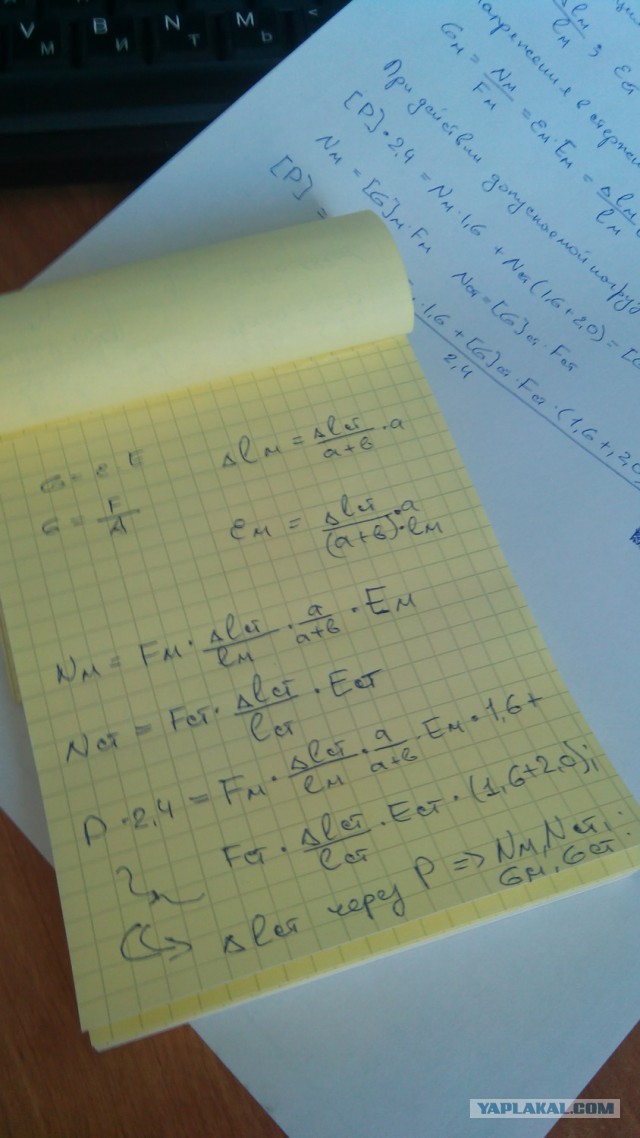 V B N M <
М И Т Ь
σм = Nм/Fм = εм·Eм = Δlм/lм
При действии допускаемой нагруз
[P]·2,4 = Nм·1,6 + Nст(1,6+2,0) =
Nм = [σ]м·Fм Nст = [σ]ст·Fст
[P] =
·1,6 + [σ]ст·Fст·(1,6+2,0)
2,4
σ = ε E Δlм = Δlст/(a+в) · a
σ = F/A εм = Δlст·a/((a+в)·lм)
Nм = Fм · Δlст/lм · a/(a+в) · Eм
Nст = Fст · Δlст/lст · Eст
P·2,4 = Fм · Δlст/lм · a/(a+в) · Eм · 1,6 +
Fст · Δlст/lст · Eст · (1,6+2,0);
Δlст через P => Nм, Nст;
σм, σст.
YAPLAKAL.COM